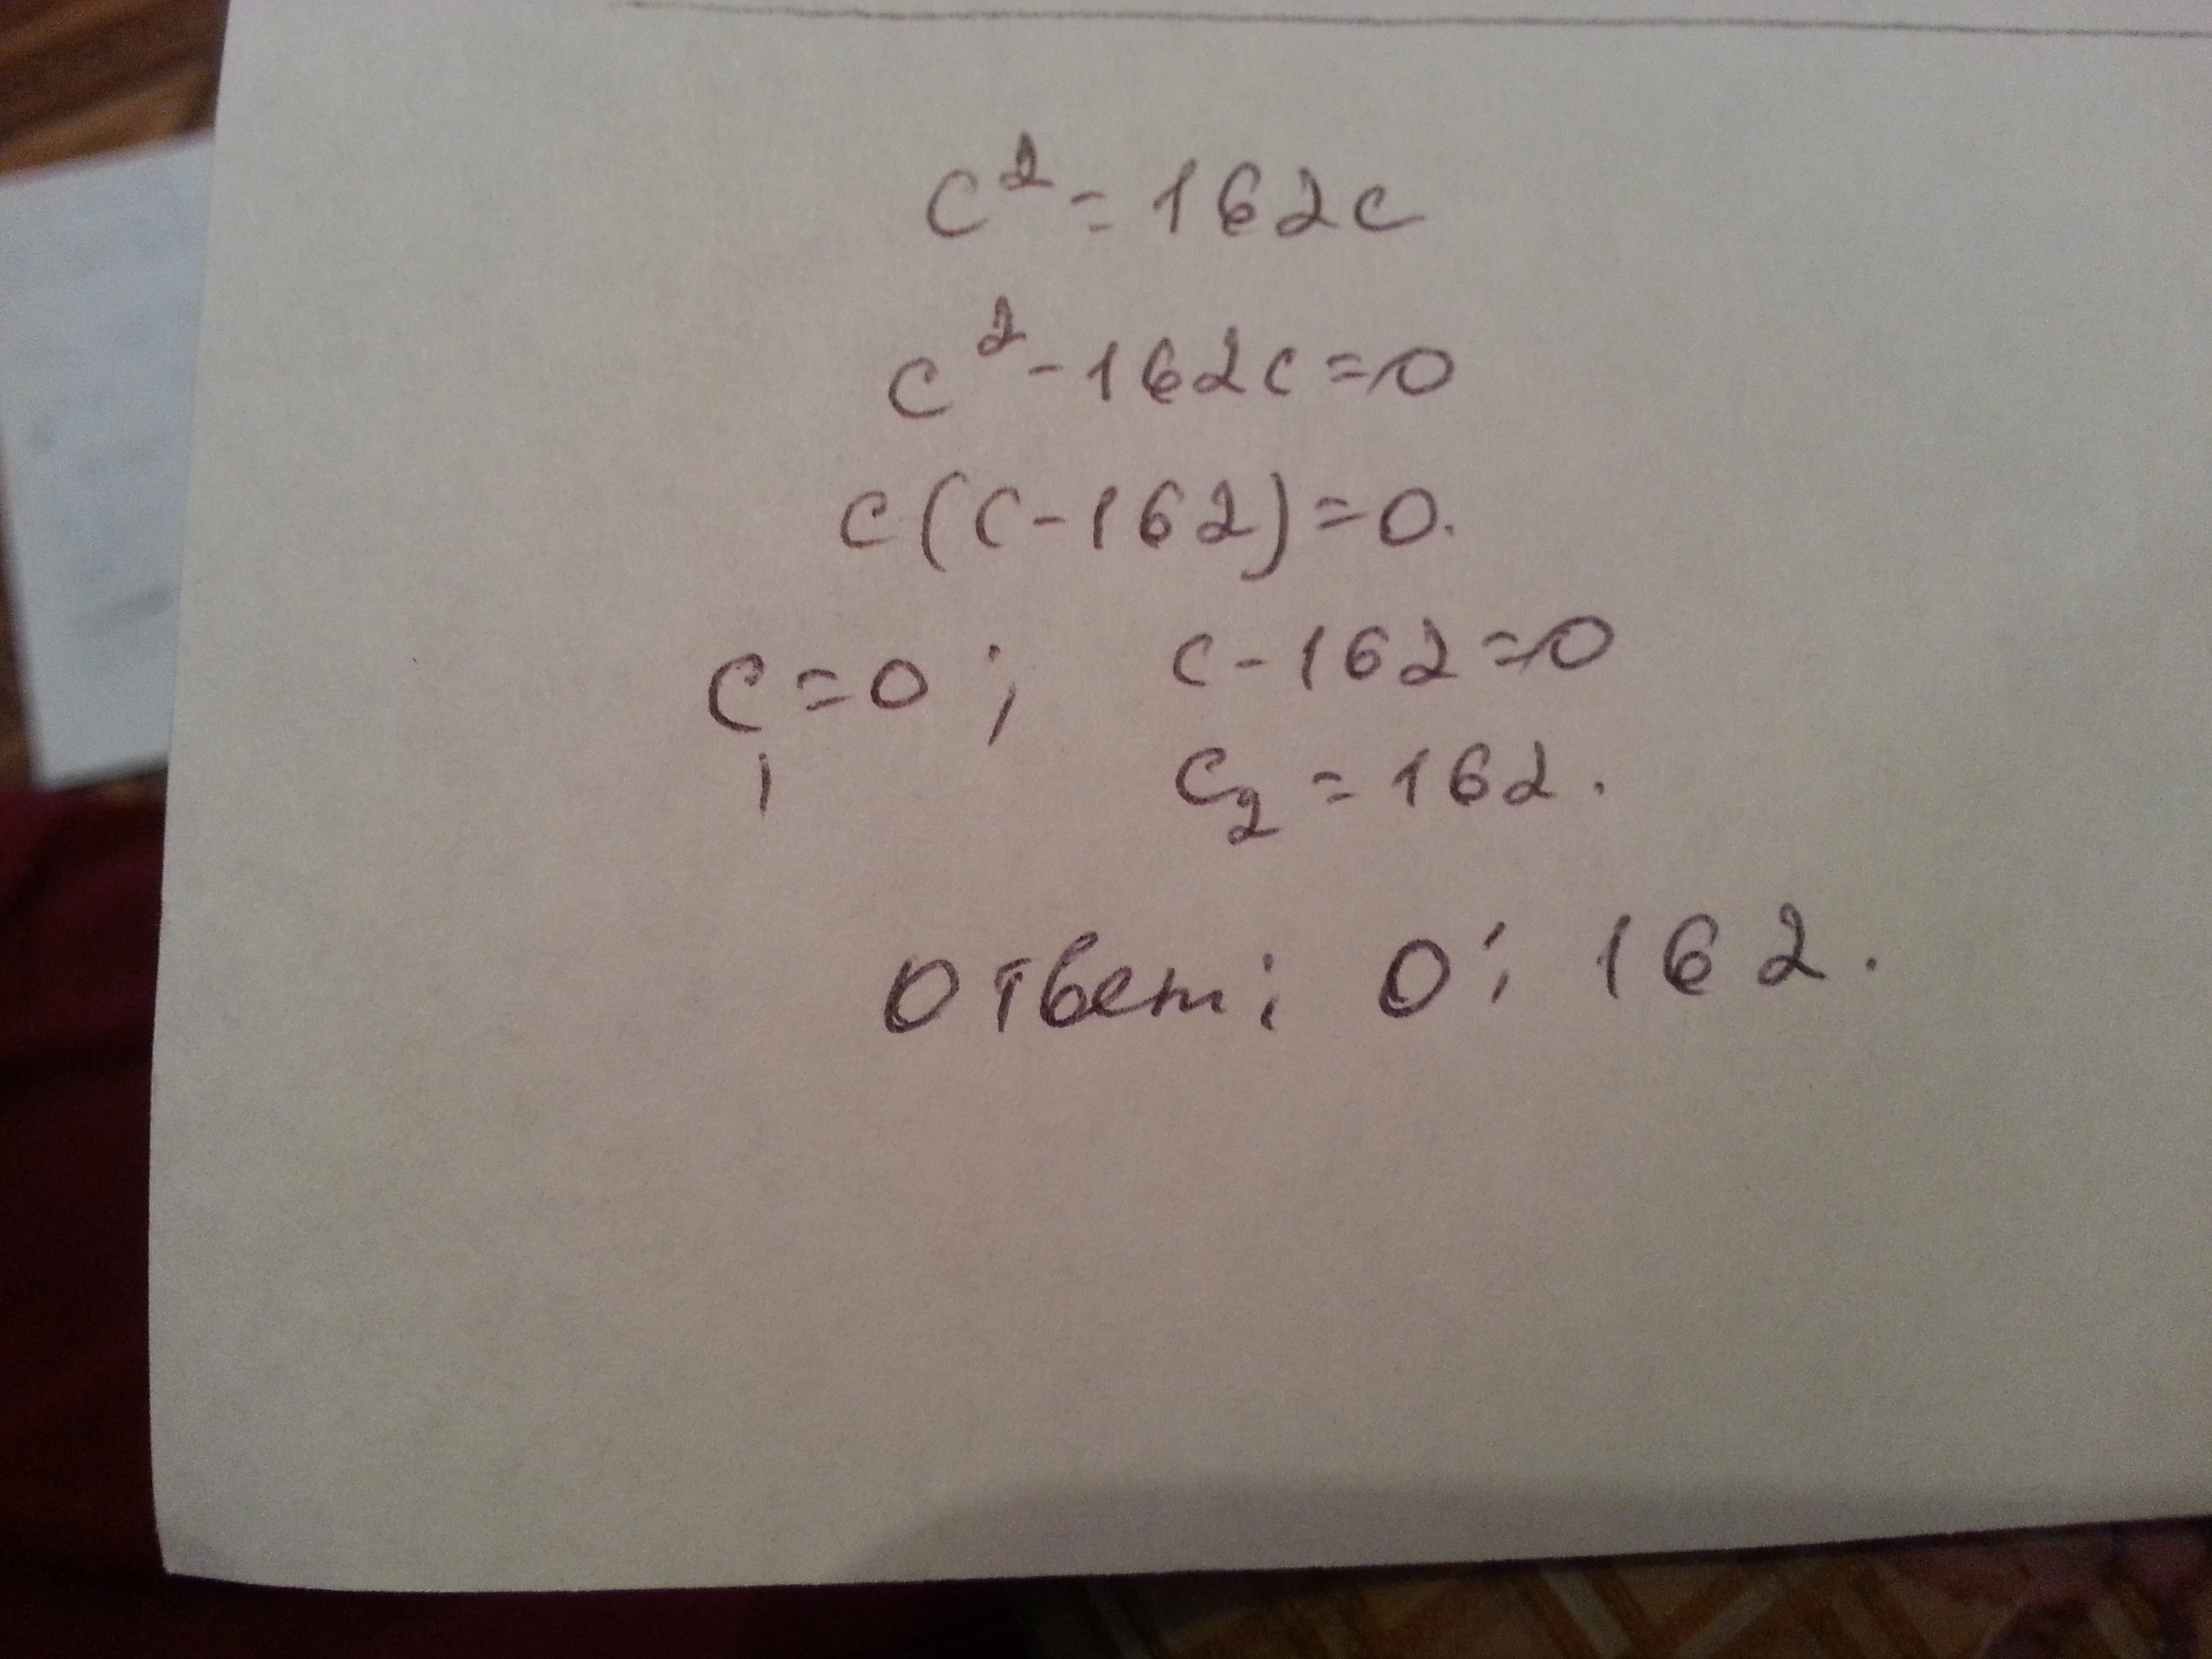 c² = 162c
c² - 162c = 0
c(c - 162) = 0.
c₁ = 0; c - 162 = 0
c₂ = 162.
Ответ: 0; 162.